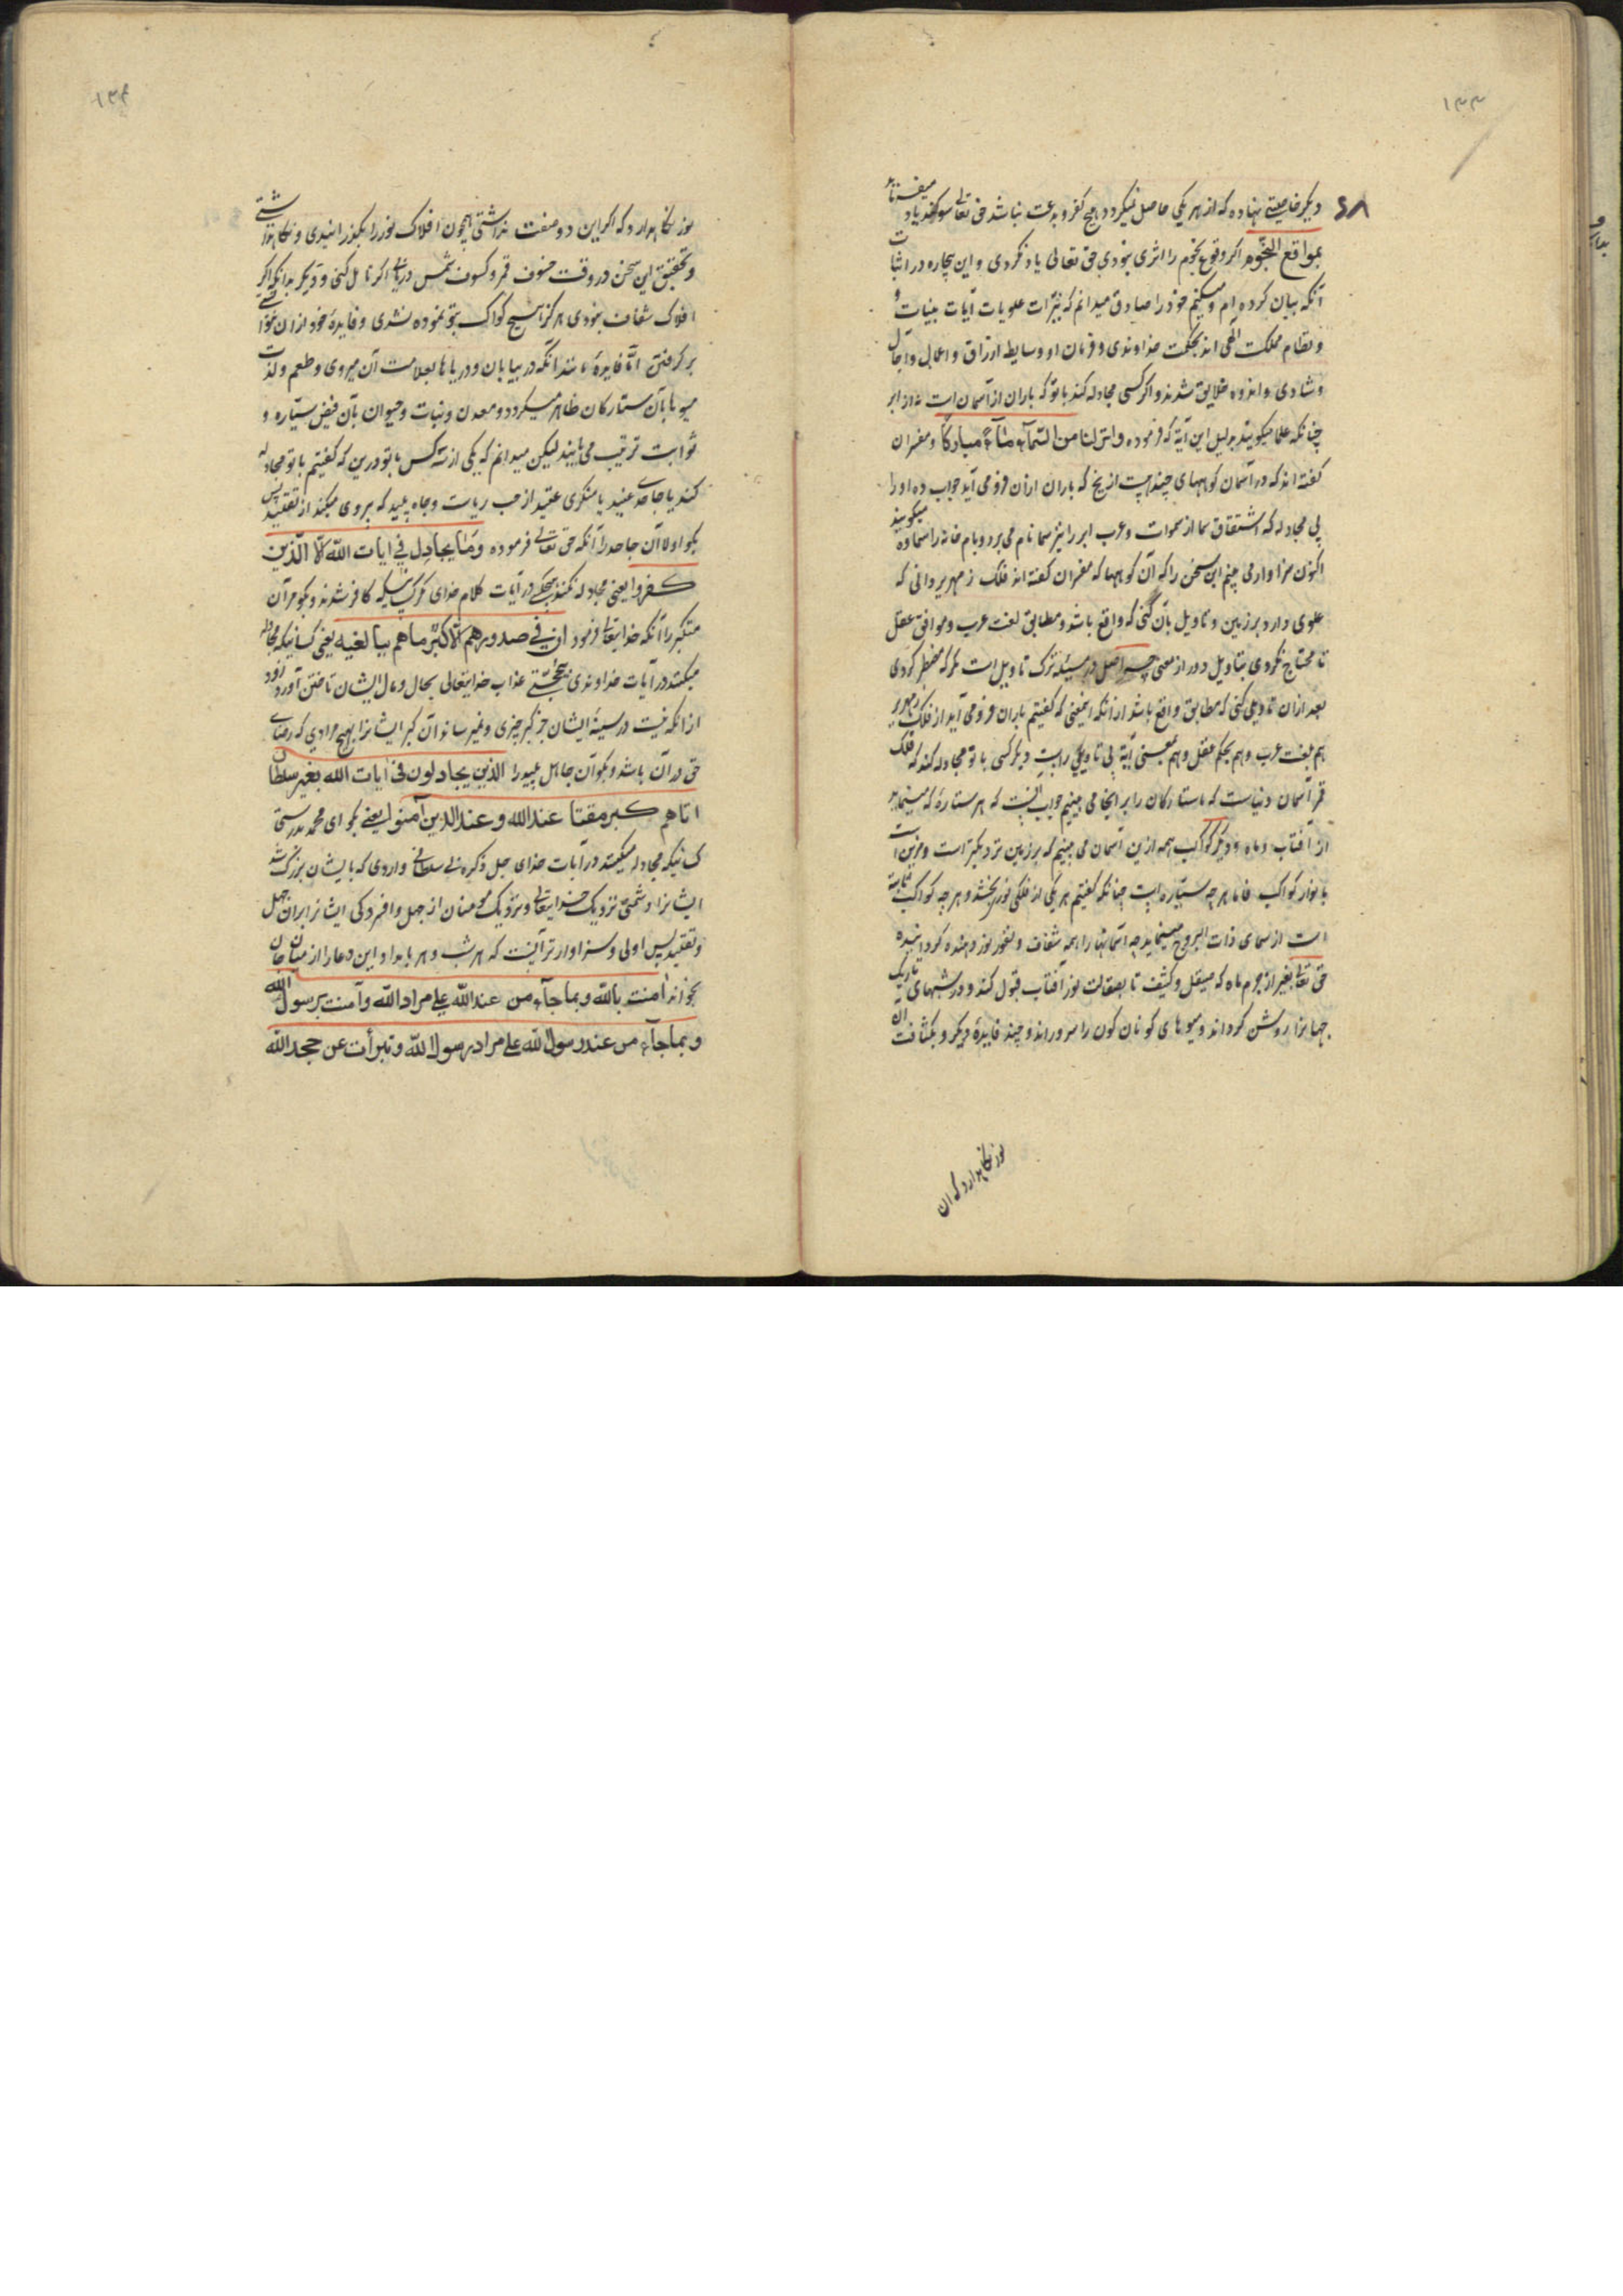 ۱۳۳
دیکر خاصیتی نهاده که از هر یکی حاصل نمیکردد هیچ کفر و بدعت نباشد حق تعالی سوکند یاد میفرماید
بمواقع النجوم اکر وقوع نجوم را اثری نبودی حق تعالی یاد نکردی و این بیچاره در اثبات
آنکه بیان کرده ام و میکنم خود را صادق میدانم که نیرات علویات آیات بینات و
و نظام مملکت الهی اند بحکمت خداوندی و فرمان او وسایط ارزاق و اعمال و آجال
و شادی و اندوه خلایق شدند و اکر کسی مجادله کند با تو که باران از آسمان است نه از ابر
چنانکه علما میکویند بدلیل این آیة که فرموده وانزلنا من السمآء مآء مبارکا و مفسران
کفته اند که در آسمان کوههای چند هست از یخ که باران ازان فرو می آید جواب ده او را
بی مجادله که اشتقاق سما از سموات و عرب ابر را نیز سما نام می برد و بام خانه را سماوه میکویند
اکنون سزاوار می بینم این سخن را که آن کوهها که مفسران کفته اند فلک زمهریر دانی که
علوی دارد بر زمین و تاویل بآن کنی که واقع باشد و مطابق لغت عرب و موافق عقل
تا محتاج نکردی بتاویل دور از معنی چه اصل در مسئله ترک تاویل است مکر که مضطر کردی
بعد ازان تاویلی کنی که مطابق واقع باشد از آنکه این معنی که کفتیم باران فرو می آید از فلک زمهریر
هم بلغت عرب و هم بحکم عقل و هم بمعنی آیة بی تاویلی راست و مکر کسی با تو مجادله کند که فلک
قمر آسمان دنیاست که ما ستارکان را بر اینجا می بینیم جواب آنست که هر ستارۀ که می نماید
از آفتاب و ماه و دیکر کواکب همه ازین آسمان می بینیم که بر زمین نزدیکتر است و مزین است
بانوار کواکب فاما هر چه سیاره است چنانکه کفتیم هر یکی از فلکی نور بخشد و هر چه کواکب ثابته
است از سمای ذات البروج مینماید چه آسمانها را همه شفاف و نور دهنده کردانیده
حق تعالی بغیر از جرم ماه که صیقل و کثیف تا بصقالت نور آفتاب قبول کند و در شبهای تاریک
جهانرا روشن کرداند و میوهای کوناکون را بپروراند و چند فایدۀ دیکر و بکثافت آن
نور نکاهدارد که اکر
۱۳۴
نور نکاهدارد که اکر این دو صفت نداشتی همچون افلاک نور را بکذرانیدی و نکاه نداشتی
و تحقیق این سخن در وقت خسوف قمر و کسوف شمس دریابی اکر تامل کنی و دیکر بدانکه اکر
افلاک شفاف نبودی هرکز هیچ کواکب بتو نموده نشدی و فایدۀ خود ازان نتوانستی
بر کرفتن امّا فایدۀ مانند آنکه در بیابان و دریاها بعلامت آن میروی و طعم و لذت
میوها بآن ستارکان ظاهر میکردد و معدن و نبات و حیوان بآن فیض سیّاره و
ثوابت تربیت می یابند لیکن میدانم که یکی از سه کس با تو درین که کفتیم با تو مجادله
کند یا جاحدی عنید یا متکبری عتید از حب ریاست و جاه یا پلید که پروی میکند از تقلید پس
بکو اولا آن جاحد را آنکه حق تعالی فرموده وما یجادل فی ایات الله الا الذین
کفروا یعنی مجادله نکند هیچکس در آیات کلام خدای مکر کسانیکه کافر شدند و بکو مر آن
متکبر را آنکه خدایتعالی فرمود ان فی صدورهم الا کبر ما هم ببالغیه یعنی کسانیکه مجادله
میکنند در آیات خداوندی بی حجتی عذاب خدایتعالی بحال و مال ایشان تاختن آورد زود
از آنکه نیست در سینۀ ایشان جز کبر چیزی و نمیرساند آن کبر ایشانرا بهیچ مرادی که رضای
حق در آن باشد و بکو آن جاهل پلید را الذین یجادلون فی ایات الله بغیر سلطان
اتاهم کبر مقتا عند الله وعند الذین آمنوا یعنی بکو ای محمد بدرستی
کسانیکه مجادله میکنند در آیات خدای جل ذکره بی سلطانی واردی که بایشان بزرک شد
ایشانرا دشمنی نزدیک خدایتعالی و نزدیک مومنان از جهل و افسردکی ایشانرا بران جهل
و تقلید پس اولی و سزاوارتر آنست که هر شب و هر بامداد این دعا را از میان جان
بخواند امنت بالله وبما جآء من عند الله علی مراد الله وآمنت برسول الله
وبما جآء من عند رسول الله علی مراد رسول الله وتبرأت عن جحد الله